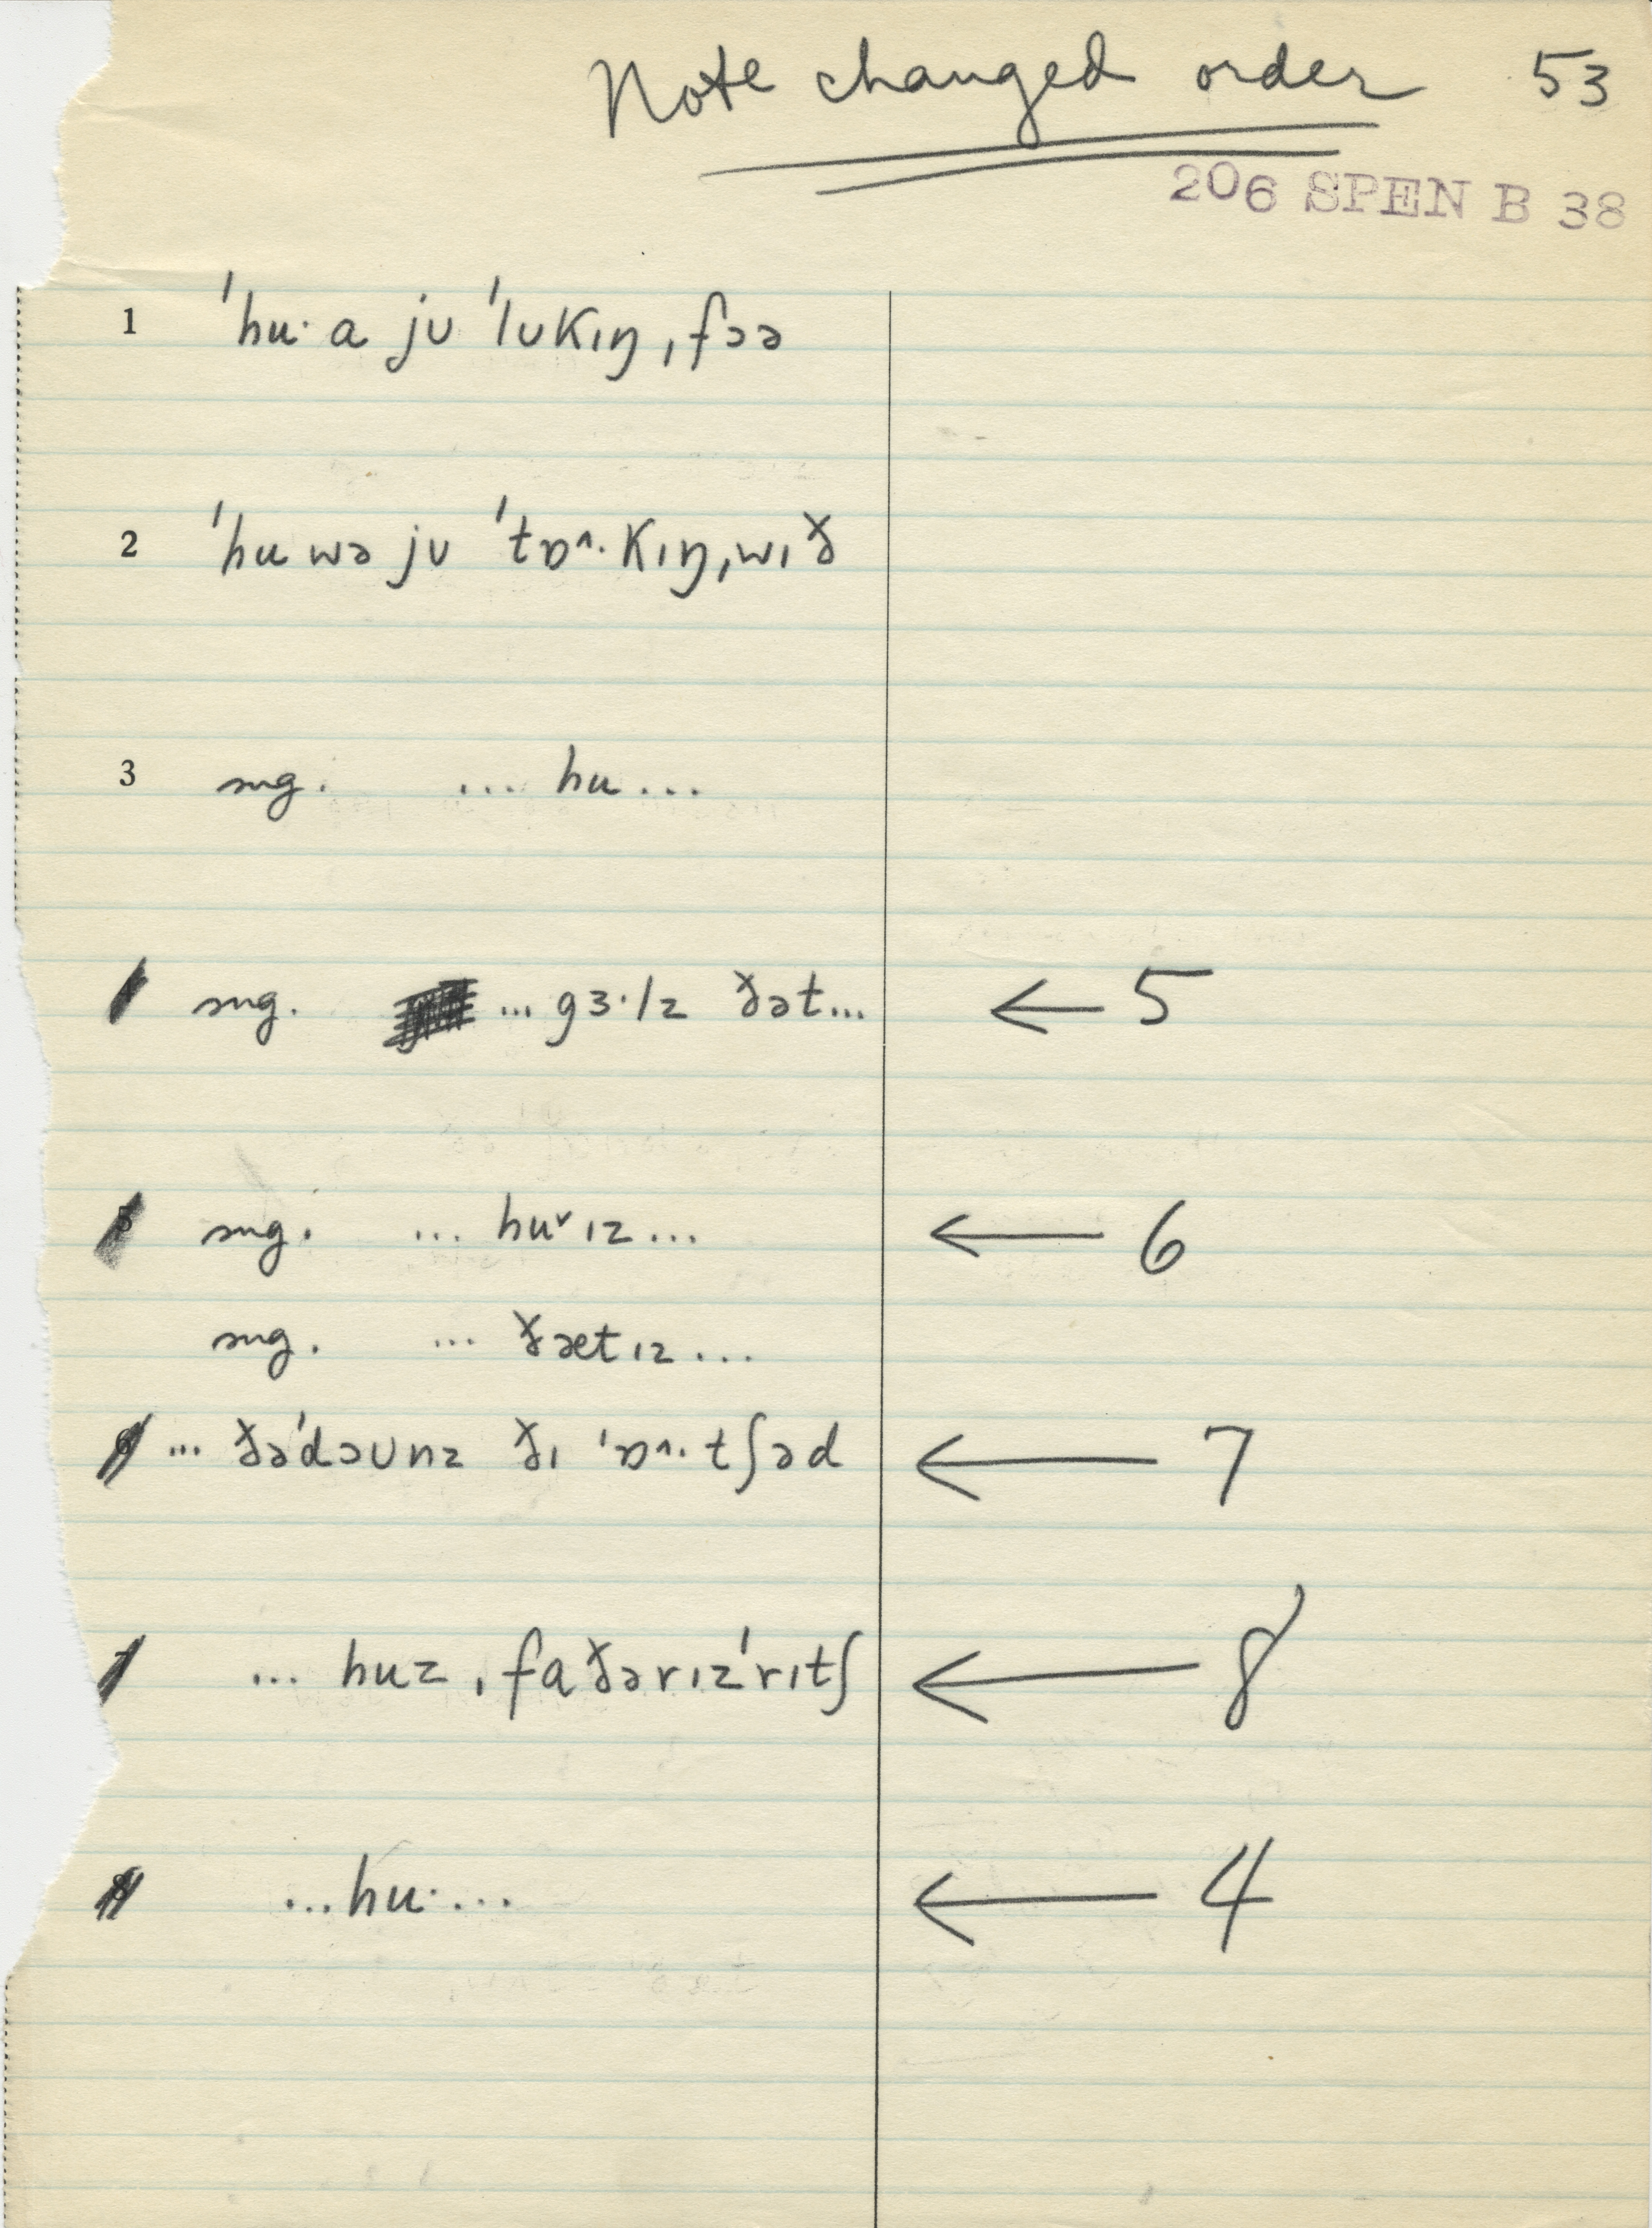 Note changed order 53
206 SPEN B 38
1 ˈhuˑ a jʊ ˈlʊkɪŋ ˌfɔə
2 ˈhu wə jʊ ˈtɒ^ˑkɪŋ ˌwɪð
3 sug. ... hu ...
sug. ... gɜˑlz ðət... ← 5
5 sug. ... huˇ ɪz ... ← 6
sug. ... ðæt ɪz ...
6 ... ðəˈdəʊnz ðɪ ˈɒ^ˑtʃəd ← 7
7 ... huz ˌfaðərɪzˈrɪtʃ ← 8
8 ...huˑ... ← 4